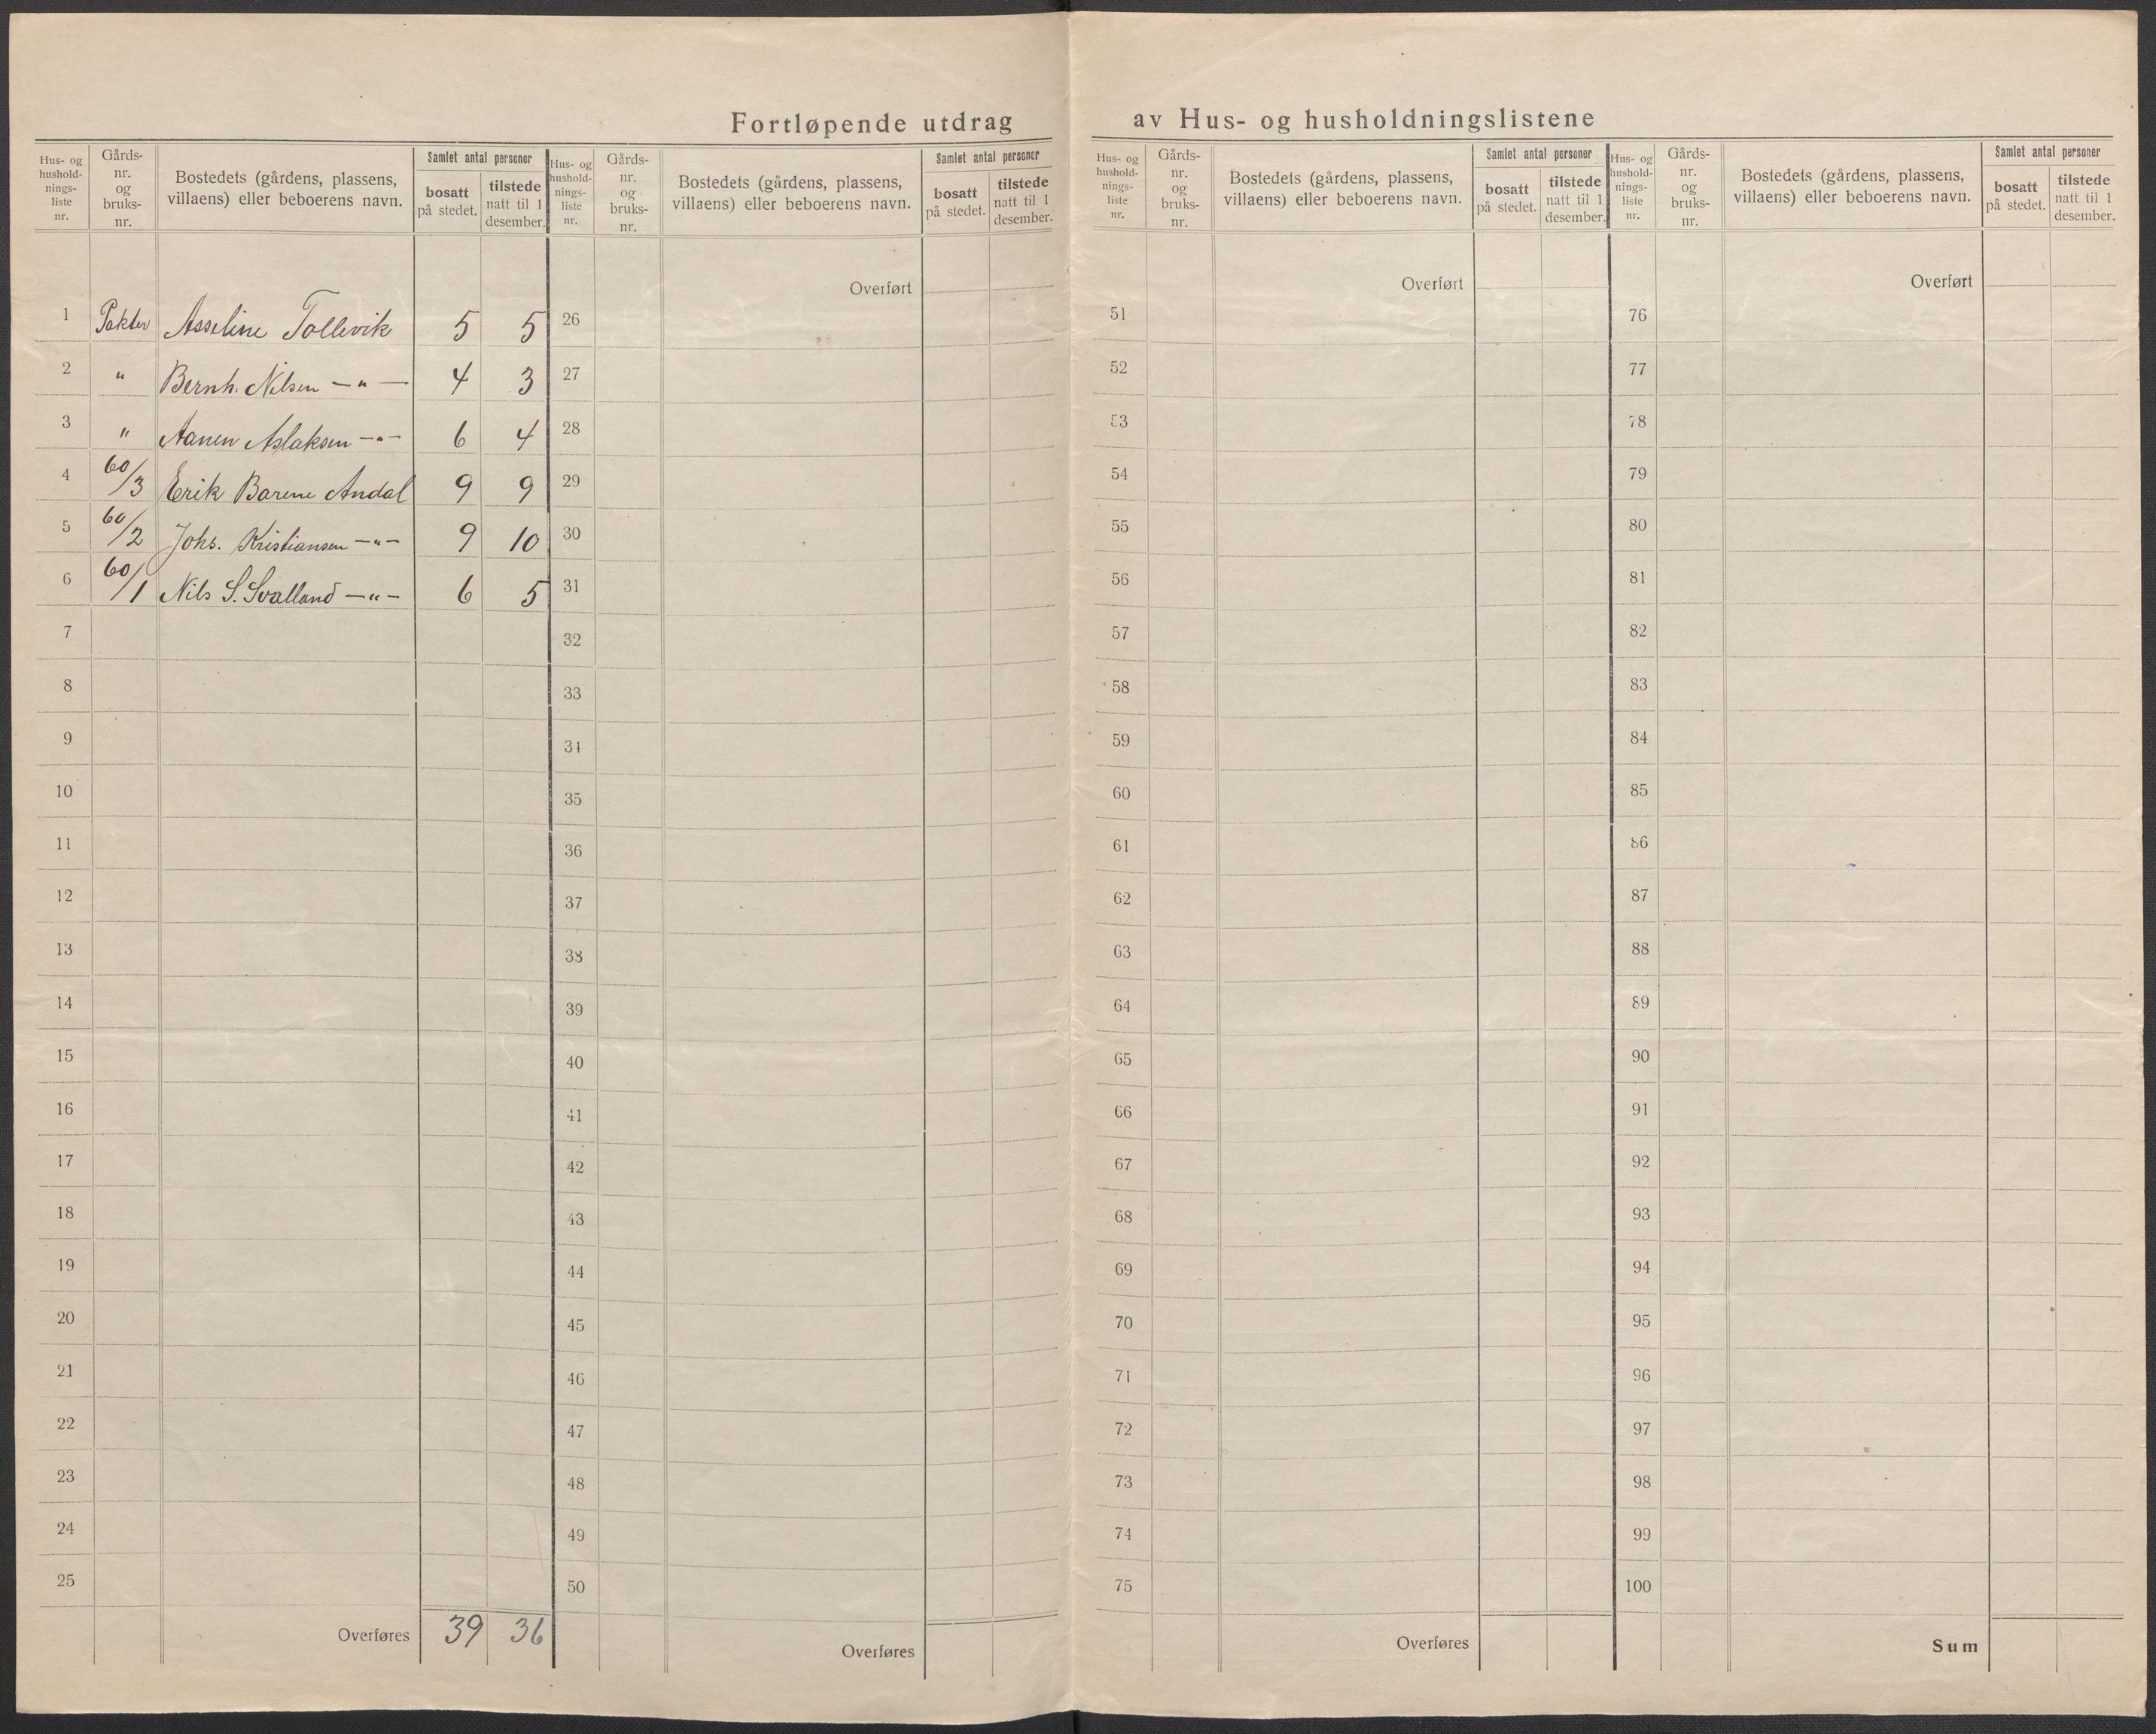 Fortløpende utdrag av Hus- og husholdningslistene
Hus- og
hushold-
nings-
liste
nr.
Gårds-
nr.
og
bruks-
nr.
Bostedets (gårdens, plassens,
villaens) eller beboerens navn.
Samlet antal personer
bosatt
på stedet.
tilstede
natt til 1
desember.
1 Pakter Asseline Tollevik 5 5
2 " Bernh. Nilsen —"— 4 3
3 " Aanen Aslaksen —"— 6 4
4 60/3 Erik Barene Andal 9 9
5 60/2 Johs. Kristiansen —"— 9 10
6 60/1 Nils S. Svalland —"— 6 5
7
8
9
10
11
12
13
14
15
16
17
18
19
20
21
22
23
24
25
Overføres 39 36
Hus- og
hushold-
nings-
liste
nr.
Gårds-
nr.
og
bruks-
nr.
Bostedets (gårdens, plassens,
villaens) eller beboerens navn.
Samlet antal personer
bosatt
på stedet.
tilstede
natt til 1
desember.
Overført
26
27
28
29
30
31
32
33
34
35
36
37
38
39
40
41
42
43
44
45
46
47
48
49
50
Overføres
Hus- og
hushold-
nings-
liste
nr.
Gårds-
nr.
og
bruks-
nr.
Bostedets (gårdens, plassens,
villaens) eller beboerens navn.
Samlet antal personer
bosatt
på stedet.
tilstede
natt til 1
desember.
Overført
51
52
53
54
55
56
57
58
59
60
61
62
63
64
65
66
67
68
69
70
71
72
73
74
75
Overføres
Hus- og
hushold-
nings-
liste
nr.
Gårds-
nr.
og
bruks-
nr.
Bostedets (gårdens, plassens,
villaens) eller beboerens navn.
Samlet antal personer
bosatt
på stedet.
tilstede
natt til 1
desember.
Overført
76
77
78
79
80
81
82
83
84
85
86
87
88
89
90
91
92
93
94
95
96
97
98
99
100
Sum